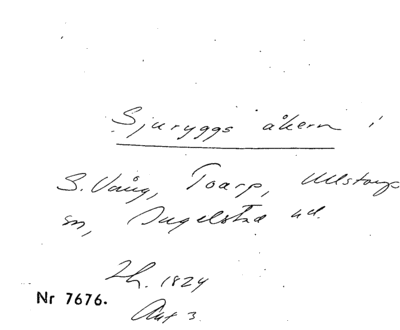 Sjuryggs åkern i
S. Vång, Toarp, Ullstorps
sn, Ingelstad hd.
Lh. 1824
Nr 7676.
Akt 3.